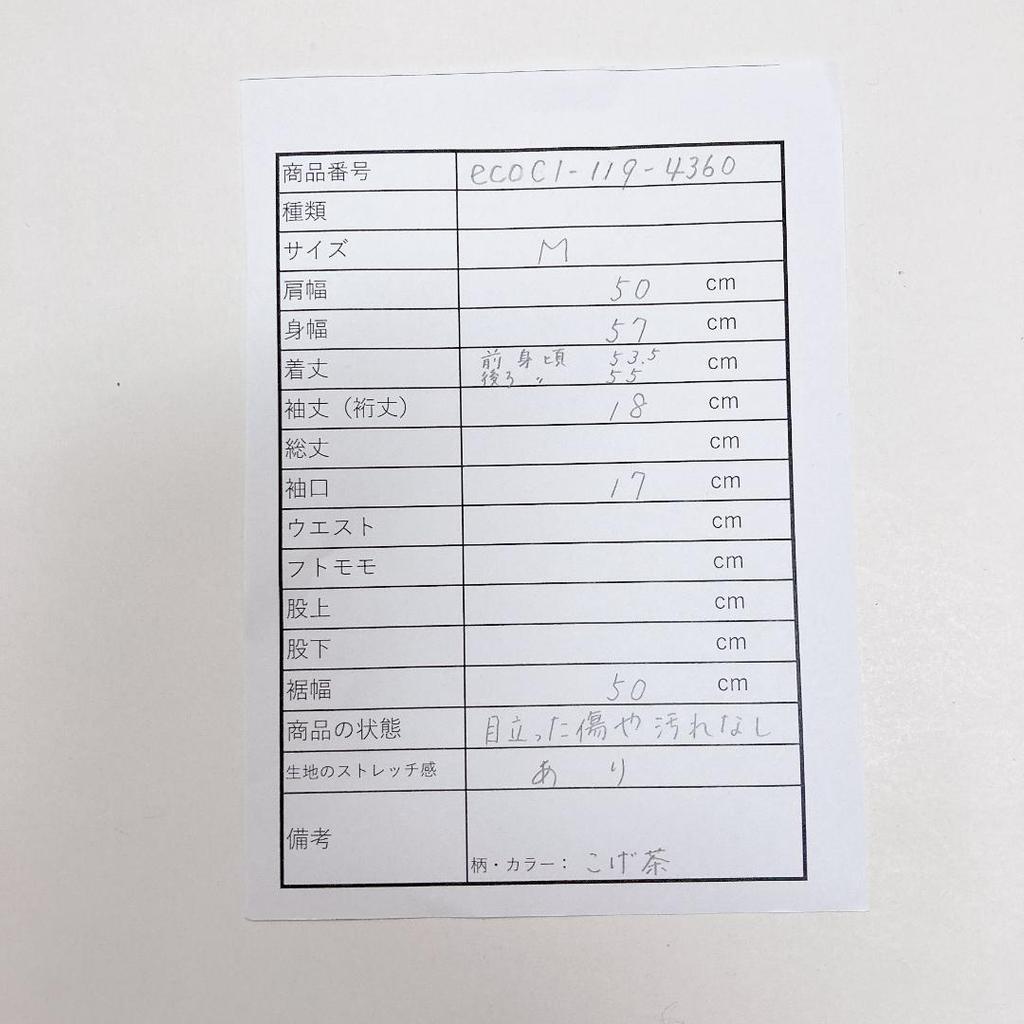 商品番号 ecoC1-119-4360
種類
サイズ M
肩幅 50 cm
身幅 57 cm
着丈 前身頃 53.5 cm
後ろ 〃 55
袖丈（裄丈） 18 cm
総丈 cm
袖口 17 cm
ウエスト cm
フトモモ cm
股上 cm
股下 cm
裾幅 50 cm
商品の状態 目立った傷や汚れなし
生地のストレッチ感 あり
備考
柄・カラー： こげ茶